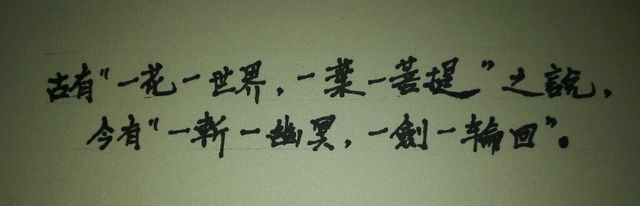 古有"一花一世界，一葉一菩提"之說，
今有"一斬一幽冥，一劍一輪回"。